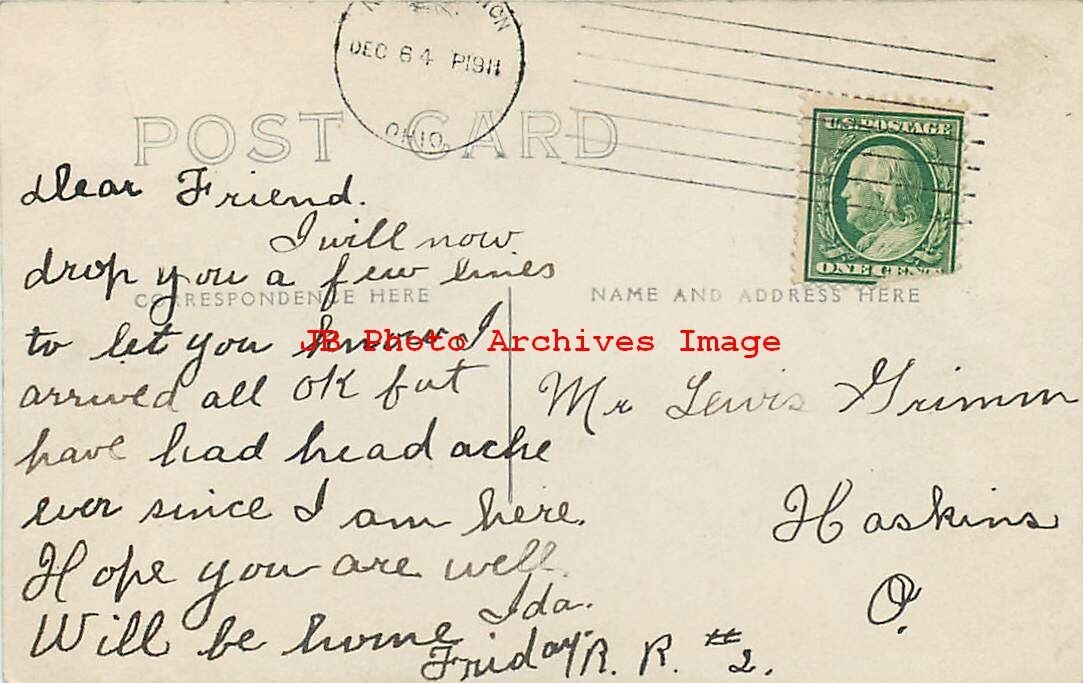 DEC 6 4 P 1911
OHIO.
POST CARD
U.S. POSTAGE
ONE CENT
Dear Friend.
I will now
drop you a few lines
to let you know I
arrived all OK but
have had head ache
ever since I am here.
Hope you are well.
Ida.
Will be home
Friday.
CORRESPONDENCE HERE
NAME AND ADDRESS HERE
JB Photo Archives Image
Mr Lewis Grimm
Haskins
O.
R. R. # 2.